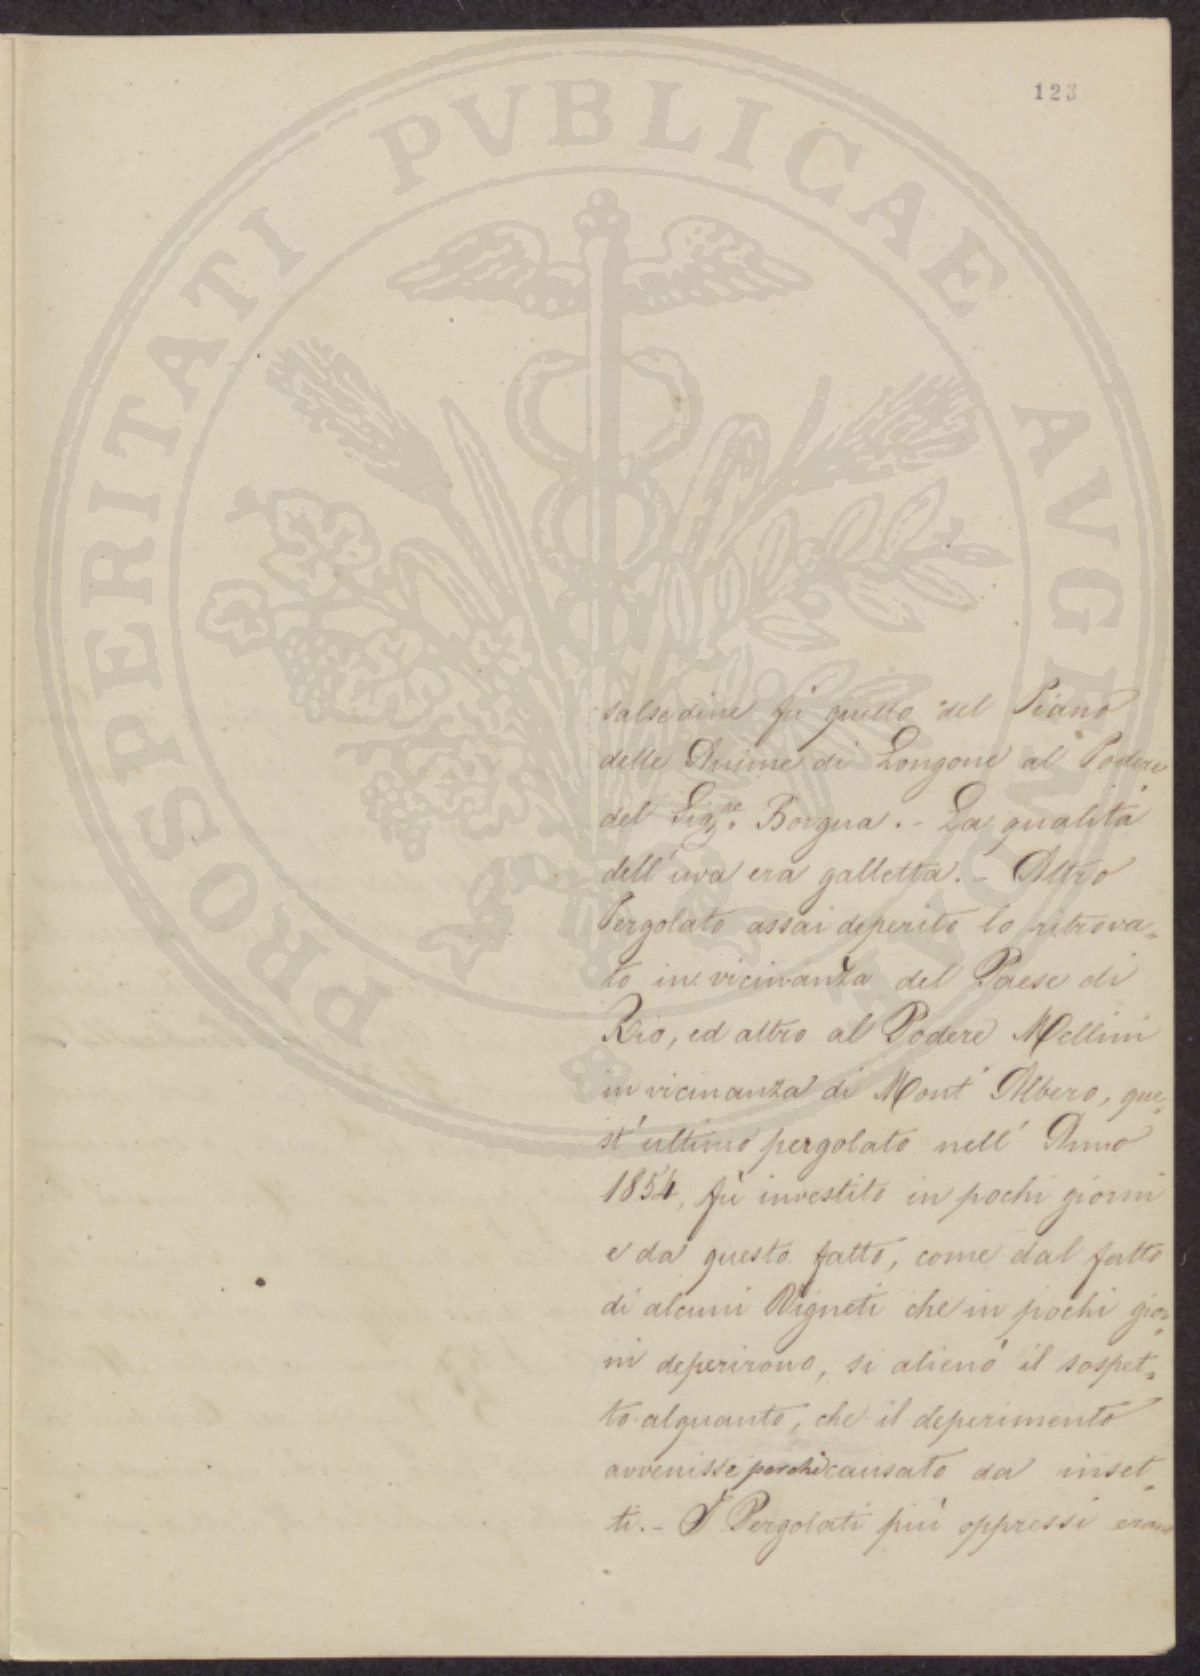 123
PROSPERITATI PVBLICAE AVGENDAE
salsedine fù quello del Piano
delle Anime di Longone al Podere
del Sig.re Borgua. - La qualità
dell'uva era galletta. - Altro
Pergolato assai deperito lo ritrova=
to in vicinanza del Paese di
Rio, ed altro al Podere Mellini
in vicinanza di Mont' Albero, que=
st'ultimo pergolato nell' Anno
1854, fù investito in pochi giorni
e da questo fatto, come dal fatto
di alcuni Vigneti che in pochi gior=
ni deperirono, si alienò il sospet=
to alquanto, che il deperimento
avvenisse perchè causato da inset=
ti. - I Pergolati più oppressi erano